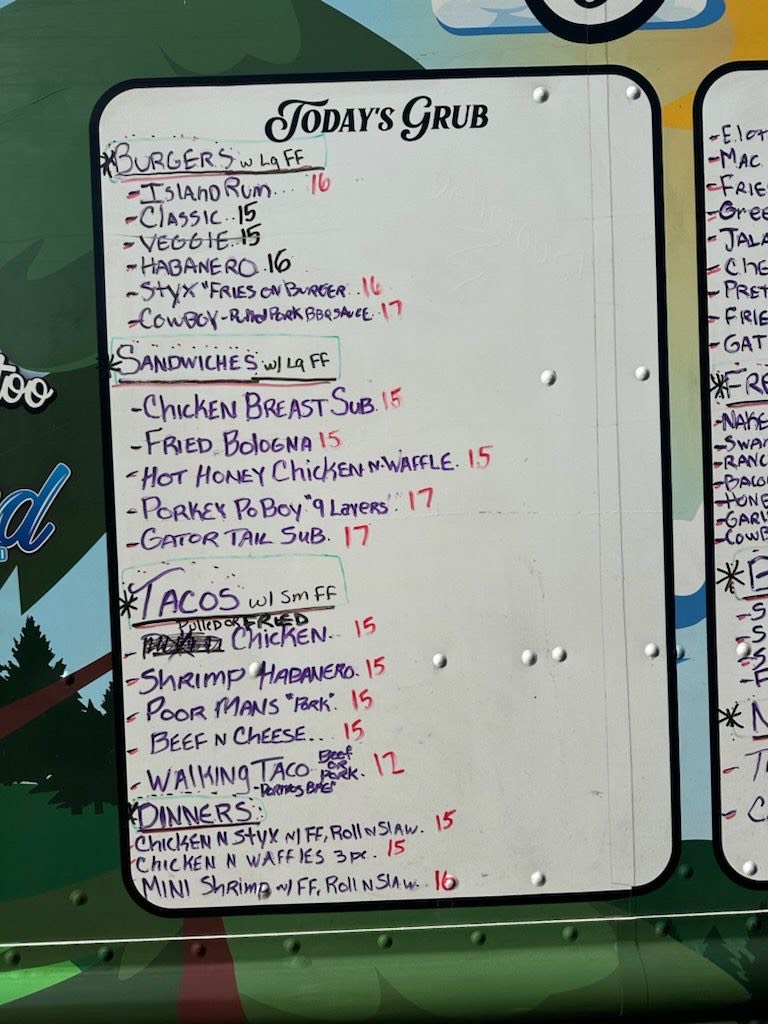 TODAY'S GRUB
*BURGERS w Lg FF
-ISLAND RUM.... 16
-CLASSIC..15
-VEGGIE.15
-HABANERO.16
-STYX "FRIES ON BURGER..16
-COWBOY-Pulled PORK BBQ SAUCE.17
*SANDWICHES w/ Lg FF
-CHICKEN BREAST SUB.15
-FRIED BOLOGNA 15
-HOT HONEY CHICKEN N WAFFLE. 15
-PORKEY PO BOY "9 Layers" 17
-GATOR TAIL SUB. 17
*TACOS w/ Sm FF
Pulled OR FRIED
- CHICKEN.. 15
-SHRIMP HABANERO.15
-POOR MANS "PORK". 15
BEEF N CHEESE... 15
-WALKING TACO Beef OR PORK. 12
*DINNERS
CHICKEN N STYX w/ FF, ROLL N SLAW. 15
CHICKEN N WAFFLES 3pc. 15
MINI SHRIMP w/ FF, ROLL N SLAW. 16
too
d
-MAC
-FRIE
-Gree
-JALA
-CHE
-PRET
-FRIE
-GAT
*FRE
-NAKE
-SWA
-RANC
-BACO
-HONE
-GARL
-COWB